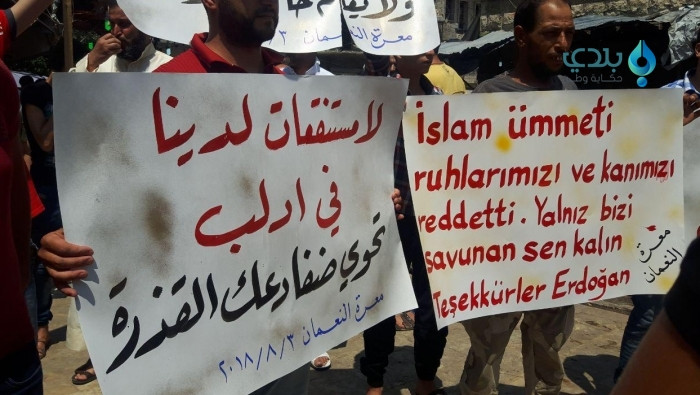 ولا يقام
معرة النعمان /٣
بلدي
حكاية وطن
لا مستنقعات لدينا
في ادلب
تحوي ضفادعك القذرة
معرة النعمان ٢٠١٨/٨/٣
İslam ümmeti
ruhlarımızı ve kanımızı
reddetti. Yalnız bizi
savunan sen kalın
Teşekkürler Erdoğan
معرة
النعمان
معرة النعمان